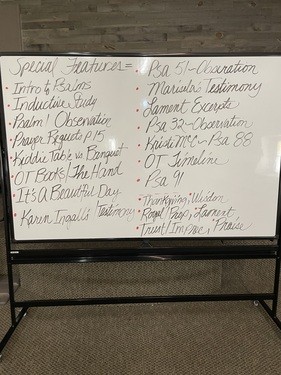 Special Features =
• Intro to Psalms
• Inductive Study
• Psalm 1 Observation
• Prayer Requests p15
• Kiddie Table vs. Banquet
• OT Books / The Hand
• It's A Beautiful Day
• Karen Ingalls' Testimony
• Psa 51 - Observation
• Marisela's Testimony
• Lament Excerpts
• Psa 32 - Observation
• Kristi McC - Psa 88
• OT Timeline
• Psa 91
• Thanksgiving, Wisdom
• Royal/ Lament
• Trust/ Praise